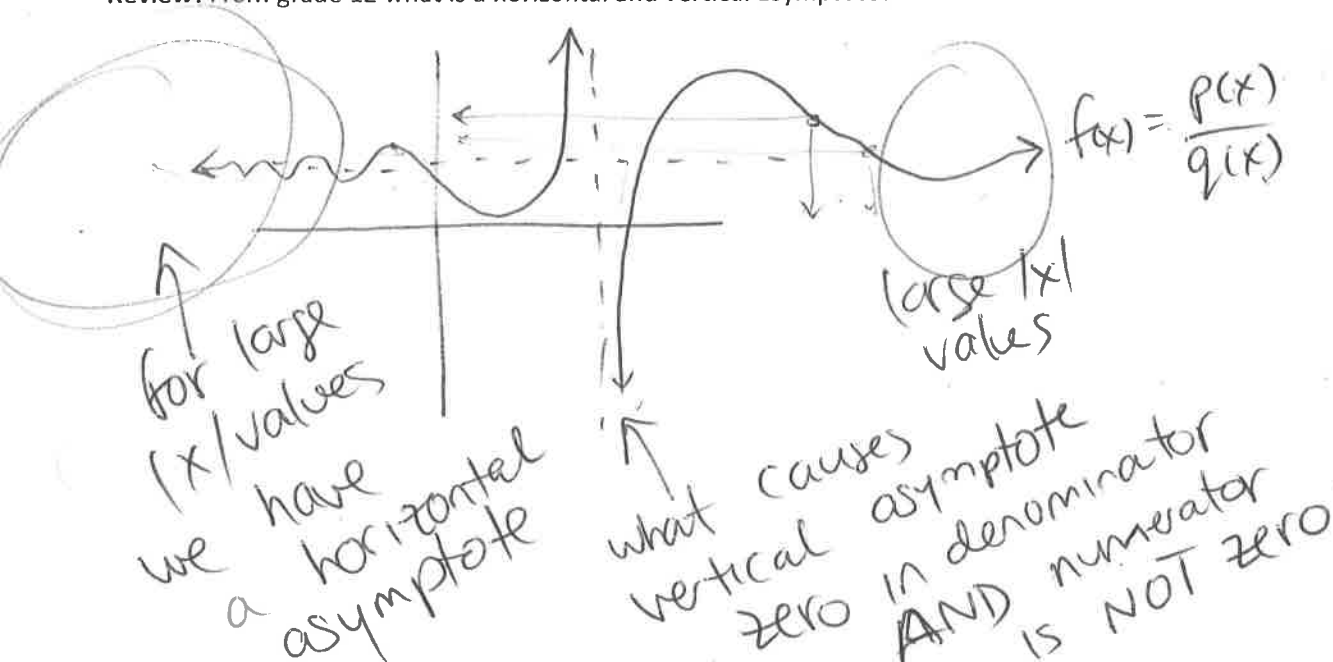 Review: From grade 12 what is a horizontal and vertical asymptote?
f(x) = p(x)
q(x)
large |x|
values
for large
|x| values
we have
a horizontal
asymptote
what causes
vertical asymptote
zero in denominator
AND numerator
is NOT zero